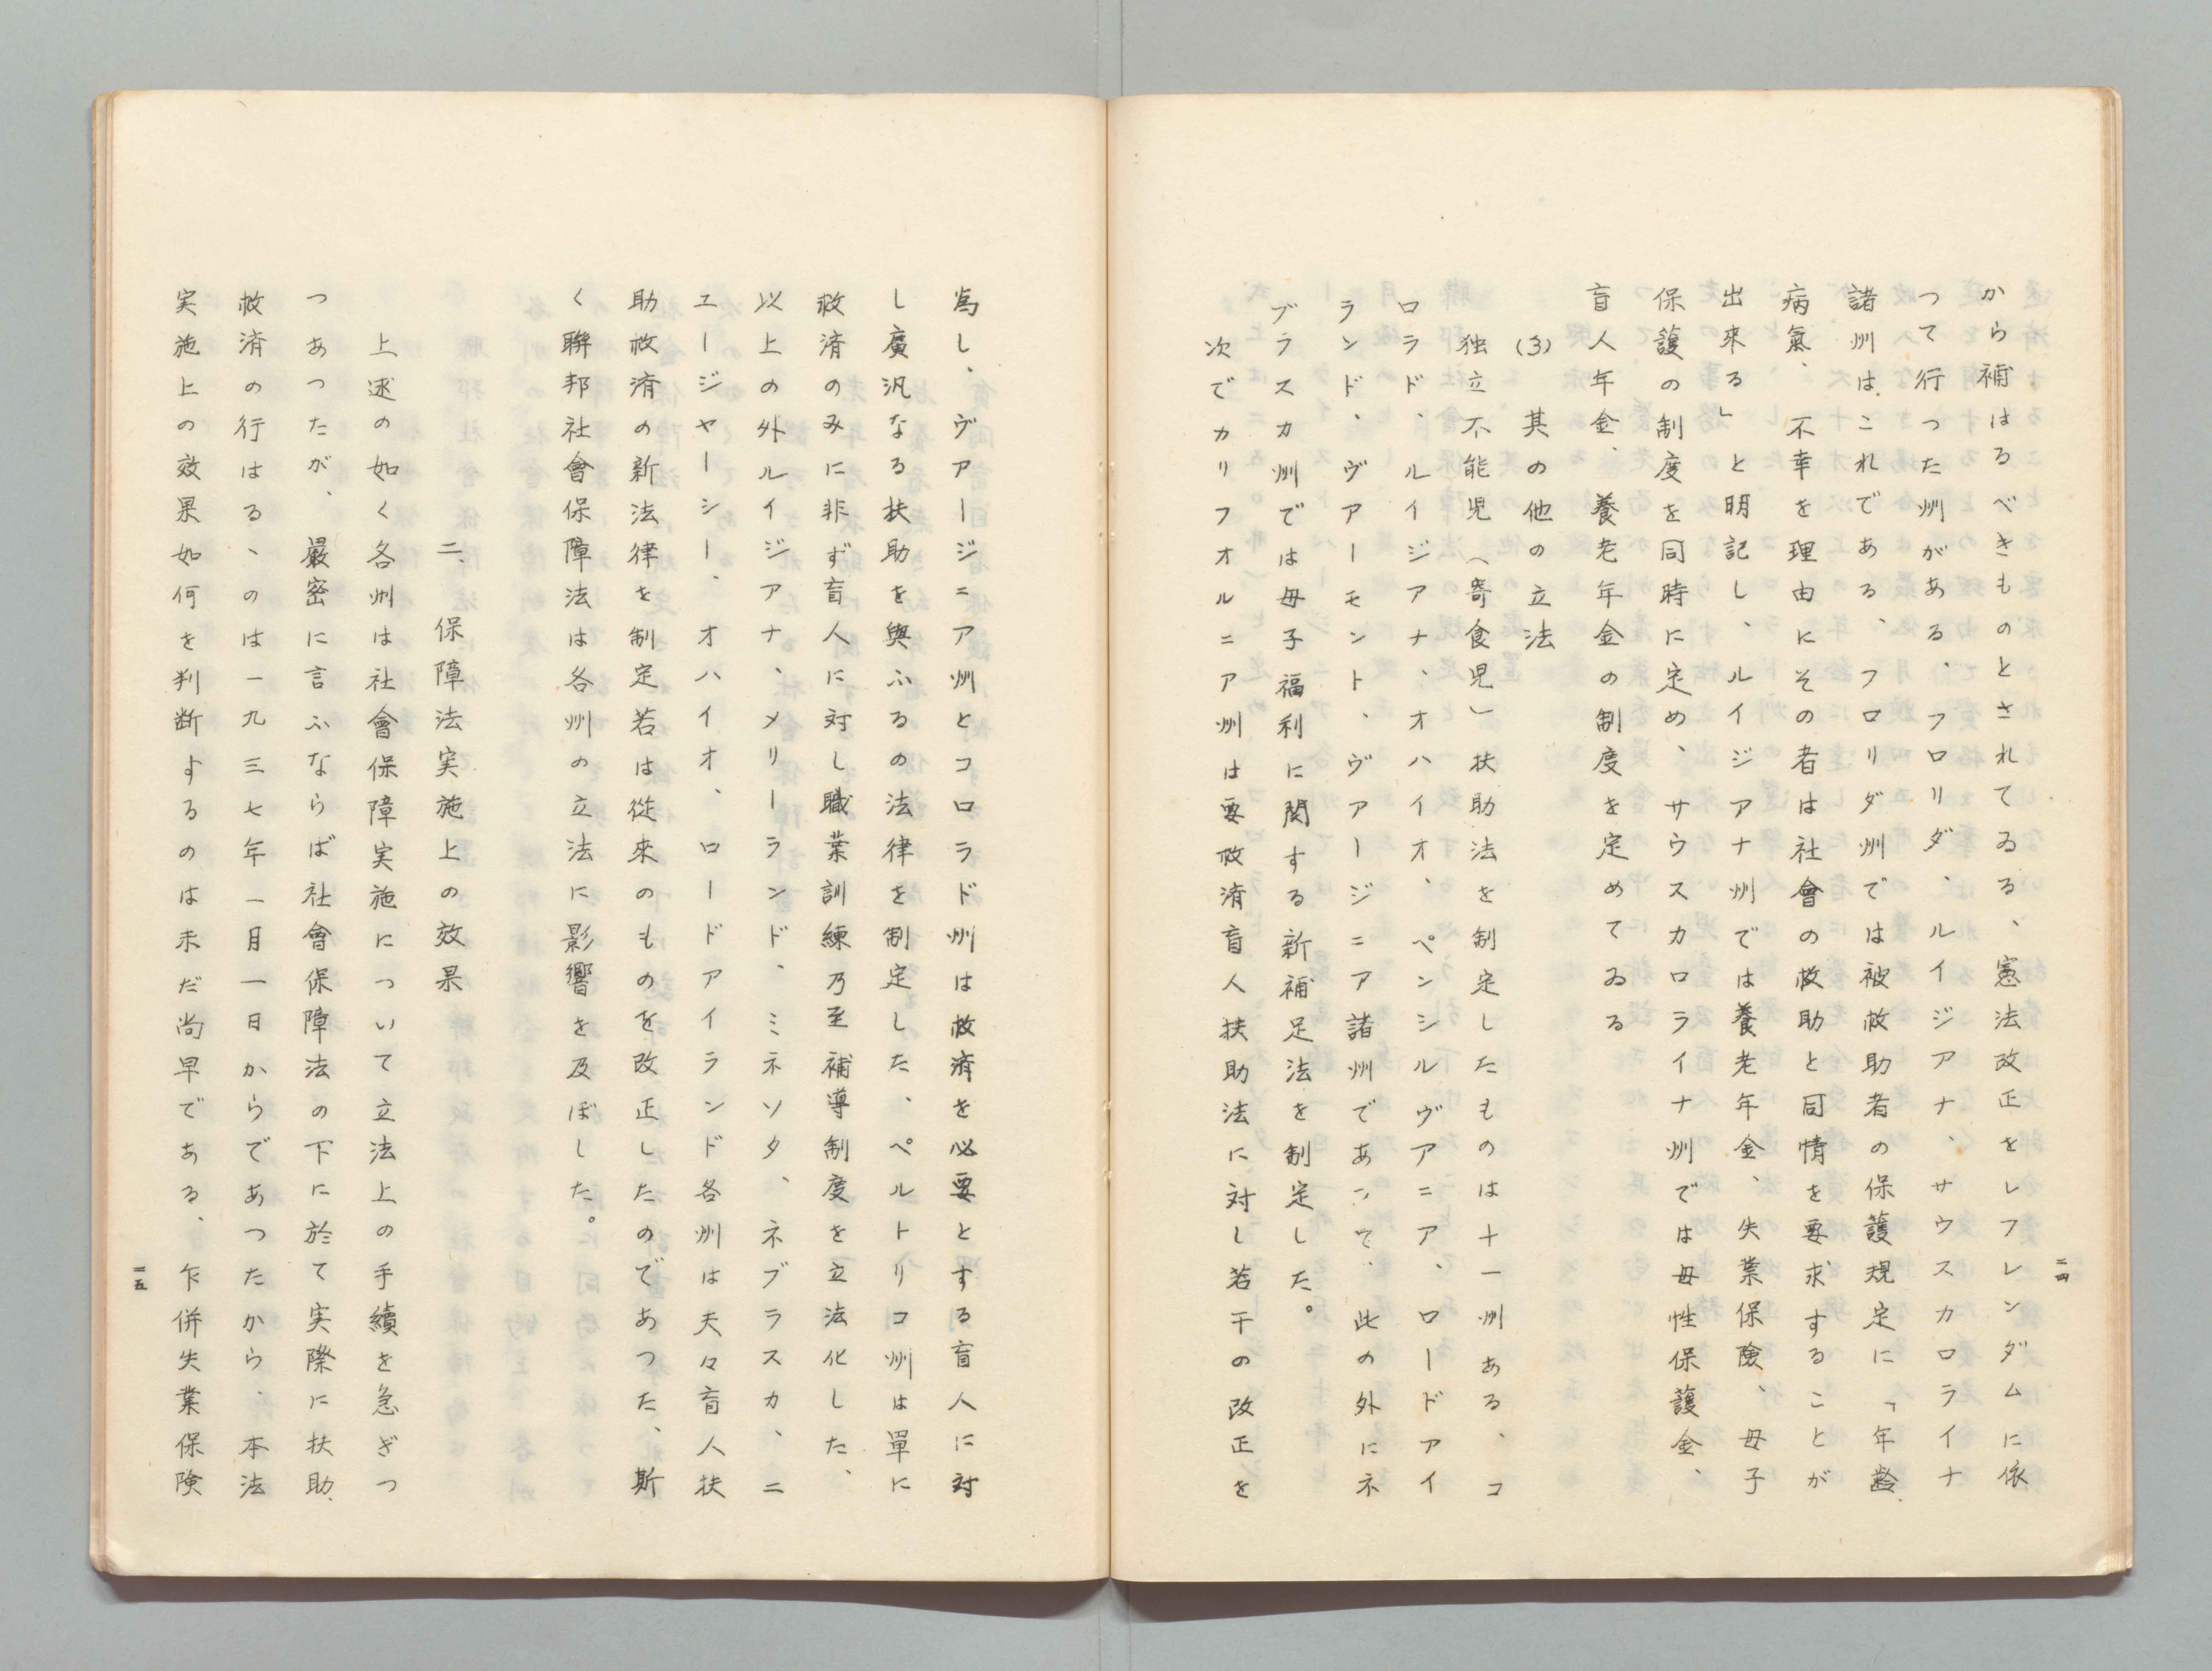 から補はるべきものとされてゐる、憲法改正をレフレンダムに依
つて行つた州がある、フロリダ、ルイジアナ、サウスカロライナ
諸州はこれである、フロリダ州では被救助者の保護規定に「年齢、
病氣、不幸を理由にその者は社會の救助と同情を要求することが
出來る」と明記し、ルイジアナ州では養老年金、失業保険、母子
保護の制度を同時に定め、サウスカロライナ州では母性保護金、
盲人年金、養老年金の制度を定めてゐる
(3) 其の他の立法
独立不能児(寄食児)扶助法を制定したものは十一州ある、コ
ロラド、ルイジアナ、オハイオ、ペンシルヴアニア、ロードアイ
ランド、ヴアーモント、ヴアージニア諸州であつて、此の外にネ
ブラスカ州では母子福利に関する新補足法を制定した。
次でカリフオルニア州は要救済盲人扶助法に対し若干の改正を
二四
為し、ヴアージニア州とコロラド州は救済を必要とする盲人に対
し廣汎なる扶助を與ふるの法律を制定した、ペルトリコ州は單に
救済のみに非ず盲人に対し職業訓練乃至補導制度を立法化した、
以上の外ルイジアナ、メリーランド、ミネソタ、ネブラスカ、ニ
ユージヤーシー、オハイオ、ロードアイランド各州は夫々盲人扶
助救済の新法律を制定若は從來のものを改正したのであつた、斯
く聯邦社會保障法は各州の立法に影響を及ぼした。
二、保障法実施上の效果
上述の如く各州は社會保障実施について立法上の手續を急ぎつ
つあつたが、嚴密に言ふならば社會保障法の下に於て実際に扶助、
救済の行はるゝのは一九三七年一月一日からであつたから、本法
実施上の效果如何を判断するのは未だ尚早である、乍併失業保険
二五